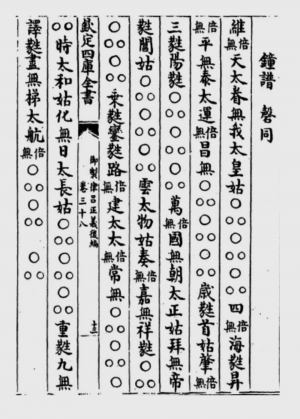 鐘譜 磬同
維倍無天太眷無我太皇姑○○○○○○四倍無海蕤昇
倍無平無泰太運倍無昌無○○○○○○歲蕤首姑肇倍無
三蕤陽蕤○○○○○○萬倍無國無朝太正姑拜無帝
蕤閽姑○○○○○○雲太物姑奏倍無嘉無祥蕤○○○
○○○乘蕤鑾蕤輅倍無建太太倍無常無○○○○
欽定四庫全書 御製律呂正義後編 卷三十八
○○時太和姑化無日太長姑○○○○○○重蕤九無
譯蕤盡無梯太航倍無○○○○○○